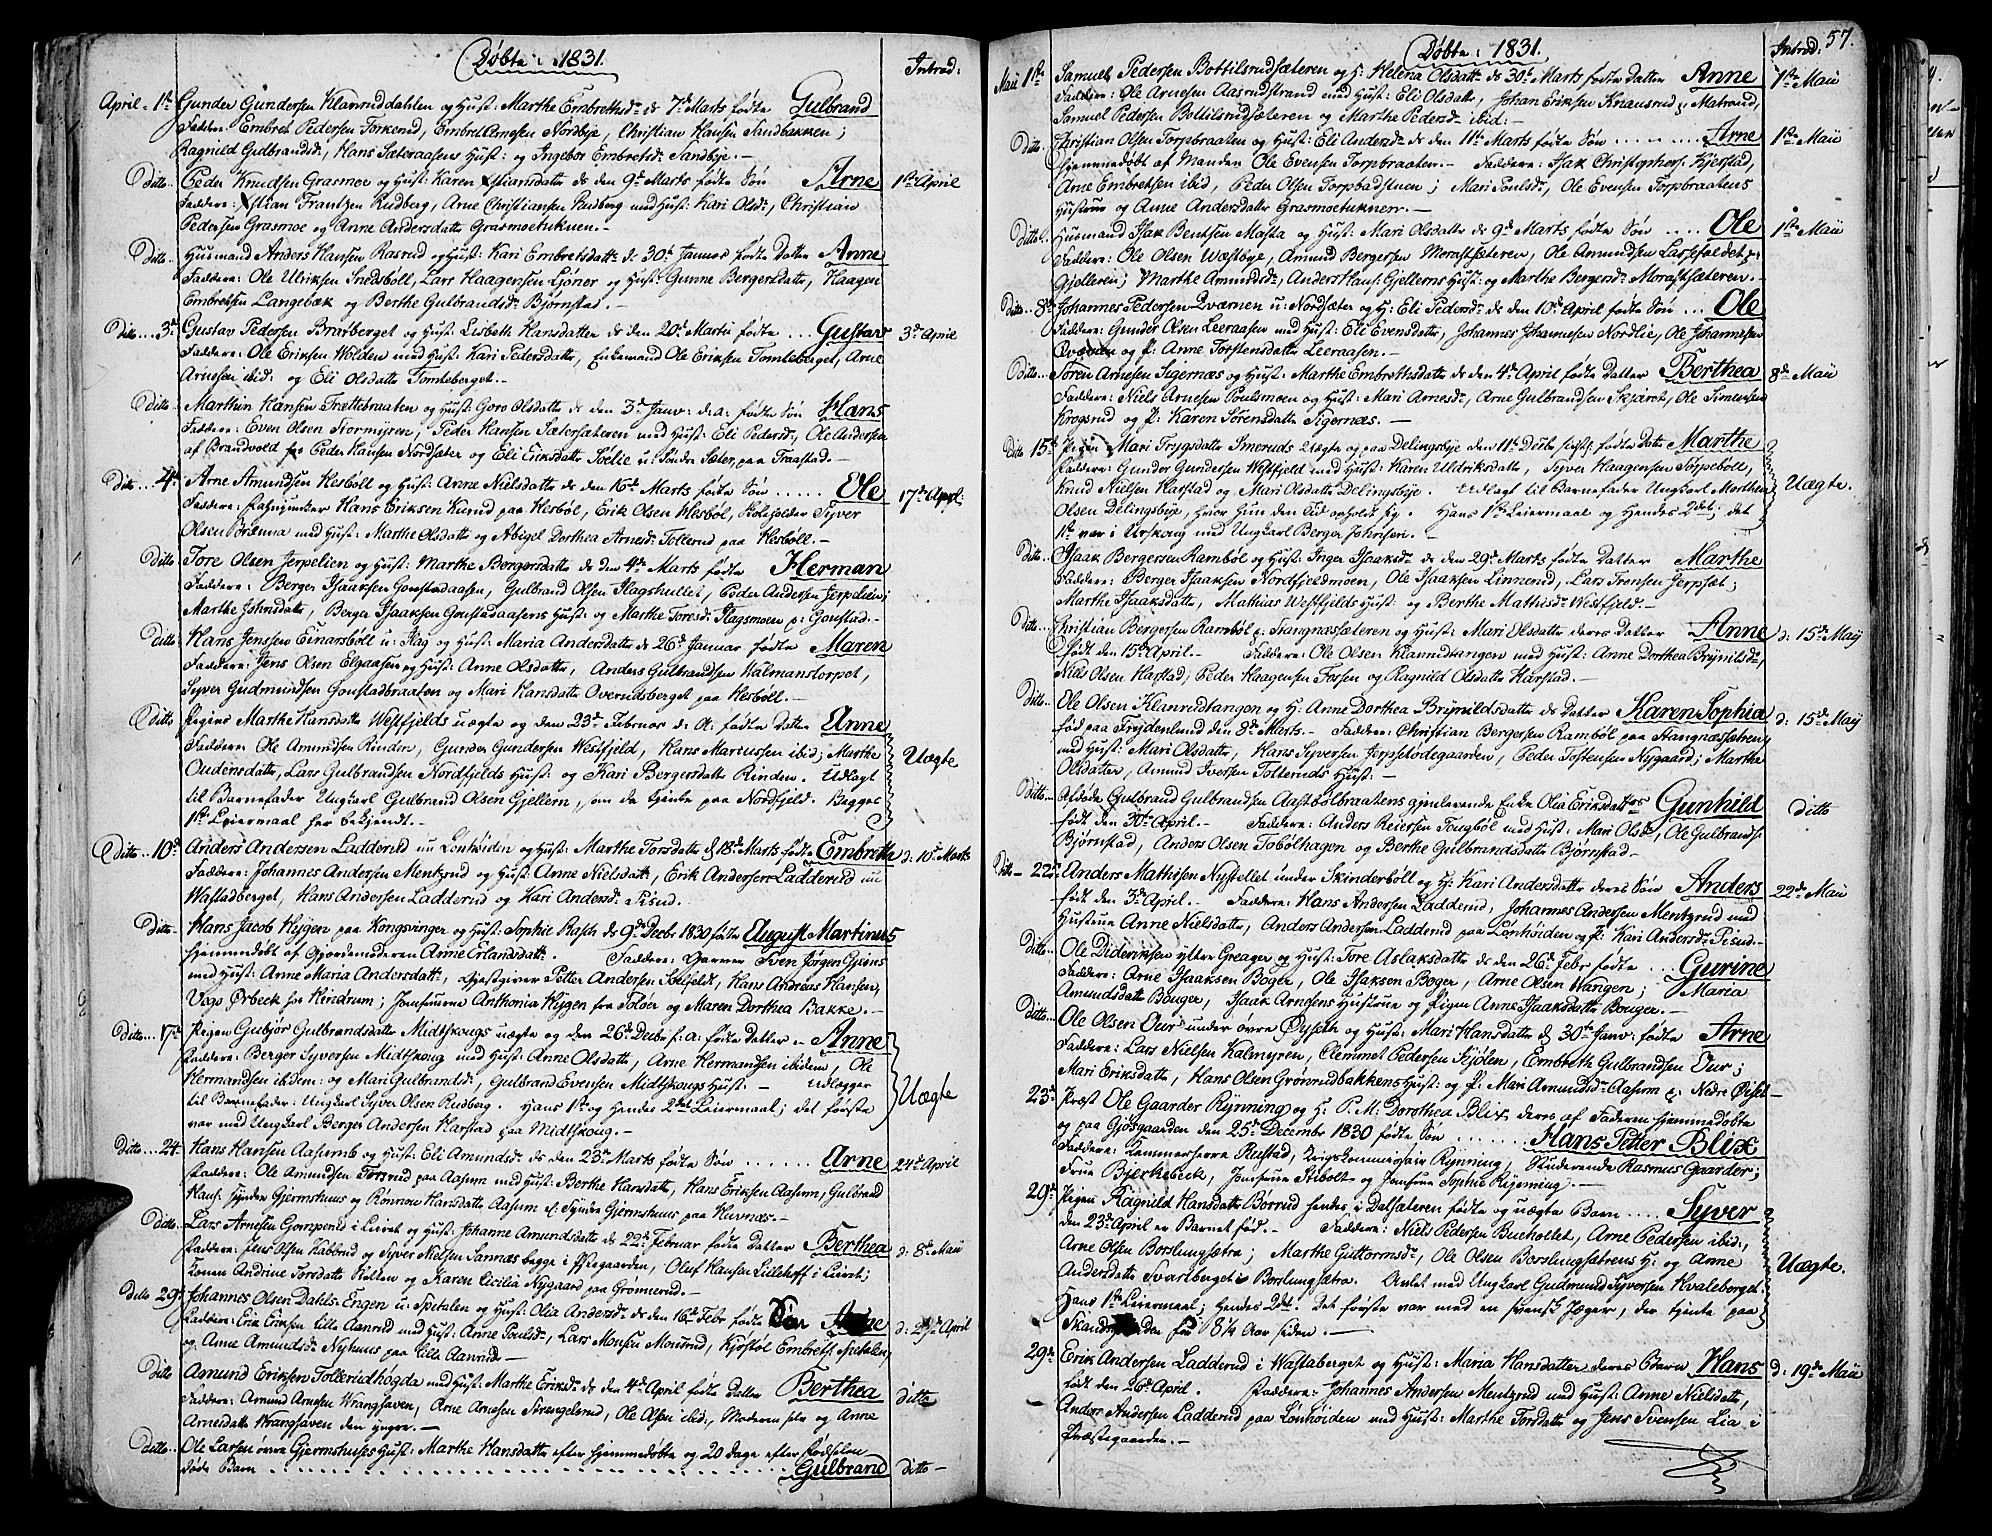 Døbte: 1831. Introd:
April - 1ste Gunder Gundersen Klanruddahlen og Hust: Marthe Embrethsdr ds 7de Marts fødte Gulbrand
Faddere: Embret Pedersen Torkerud, Embret Arnesen Nordbye, Christian Hansen Sandbakken;
Ragnild Gulbrandsdr, Hans Sateraasens Hust: og Ingebor Embretsdr Sandbye.-
Ditto.. Peder Knudsen Grasmoe og Hust: Karen Xstiansdatr ds den 9de Marts fødte Søn Arne 1ste April
Faddere: Xstian Frantzen Rudberg, Arne Christiansen Rudberg med Hust: Kari Olsdr, Christian
Pedersen Grasmoe og Anne Andersdatter Grasmoetuknen.-
Ditto.. Husmand Anders Hansen Rasrud og Hust: Kari Embretsdattr ds 30te Januar fødte Datter Anne
Faddere: Ole Ulriksen Sindsbøll, Lars Haagensen Ljøner og Hust: Gunne Bergersdattr, Haagen
Embretsen Langebæk og Berthe Gulbrandsdr Bjørnstad.-
Ditto... 3de Gustav Pedersen Bravberget og Hust: Lisbeth Hansdatter ds den 20de Martii fødte ... Gustav 3de April
Faddere: Ole Eriksen Wolden med Hust: Kari Pedersdattr, Enkemand Ole Eriksen Tomteberget, Arne
Arnesen ibid: og Eli Olsdattr Tomteberget.-
Ditto. Marthin Hansen Frættebraaten og Hust: Goro Olsdattr ds den 3de Janv: d:a: fødte Søn Hans
Faddere: Even Olsen Stormyren, Peder Hansen Sætersæteren med Hust: Eli Pedersdr, Ole Andersen
af Brandvold Peder Hansen Nordsæter og Eli Eriksdattr Sølie u: Søndre Sæter paa Fraastad.-
Ditto... 4de Arne Amundsen Hesbøll og Hust: Anne Nielsdattr ds den 16de Marts fødte Søn ...... Ole 17de April:
Faddere: Hans Eriksen paa Hesbøl, Erik Olsen Hesbøl, Syver
Olsen med Hust: Marthe Olsdattr og Abigel Dorthea Arnesdr Tollerud paa Hesbøll.-
Ditto. Tore Olsen Jerpelien og Hust: Marthe Bergersdattr ds den 4de Marts fødte Herman
Faddere: Berger Isaaksen Goustadaasen, Gulbrand Olsen Flagshullet, Peder Andersen Jerpelien;
Marthe Johnsdattr, Berger Isaaksen Goustadaasens Hust: og Marthe Toresdr Flagsmoen p: Goustad.-
Ditto. Hans Jenssen Einarsbøll u: og Hust: Maria Andersdattr ds 26de Januar fødte Maren
Faddere: Jens Olsen Elgaasen og Hust: Anne Olsdattr, Anders Gulbrandsen Walmanstorpet,
Syver Gudmundsen Goustadbraaten og Mari Hansdattr Overudsberget paa Hesbøll.-
Ditto Pigens Marthe Hansdattr Westfjelds uægte og den 23de Februar d: A: fødte Datter Anne
Faddere: Ole Amundsen Rinden, Gunder Gundersen Westfjeld, Hans Mariussen ibid; Marthe
Oudensdattr, Lars Gulbrandsen Nordfjelds Hust: og Kari Bergersdattr Rinden. Udlagt Uægte
til Barnefader Ungkarl Gulbrand Olsen Gjellern, som da tjente paa Nordfjeld. Begges
1ste Leiermaal her bekjendt.-
Ditto.. 10de Anders Andersen Ladderud nu Lønhøiden og Hust: Marthe Torsdattr ds 18de Marts fødte Embreth d: 10de Marts
Faddere: Johannes Andersen Mentzrud og Hust: Anne Nielsdattr, Erik Andersen Ladderud nu
Wastadberget, Hans Andersen Ladderud og Kari Andersdr Pisud.-
Ditto.. Hans Jacob Hygen paa Kongsvinger og Hust: Sophie Rasch ds 9de Decbr 1830 fødte August Martinus
hjemmedøbt af Gjordemoderen Anne Erlandsdattr. Faddere: Garver Sven Jørgen Gjøns
med Hust: Anne Maria Andersdattr, Gjestgiver Petter Andersen Solfeldt, Hans Andreas Hansen,
Vago Ørbeck for Kindrum; Jomfruerne Anthonia Hygen fra Solør og Maren Dorthea Bakke.-
Ditto... 17de Pigen Gubjør Gulbrandsdattr Midtskougs uægte og den 26de Decbr f:a: fødte Datter - Anne
Faddere: Berger Syversen Midtskoug med Hust: Anne Olsdattr, Arne Hermandsen ibidem, Ole
Hermandsen ibidem: og Mari Gulbrandsdr, Gulbrand Evensen Midtskougs Hust: - Udlegger Uægte
til Barnefader: Ungkarl Syver Olsen Rudberg. Hans 1ste og Hendes 2det Leiermaal; det første
var med Ungkarl Berger Andersen Harstad paa Midtskoug.-
Ditto... 24. Hans Hansen Aasumb og Hust: Eli Amundsdr ds den 23de Marts fødte Søn ...... Arne 24de April
Faddere: Ole Amundsen Torsrud paa Aasum med Hust: Berthe Hansdattr, Hans Eriksen Aasum, Gulbrand
Hans: Søndre Gjermshuus og Rønnou Hansdattr Aasum Søndre Gjermshuus paa Huvnæs.-
Ditto.. Lars Arnesen Gompenud i Leiret og Hust: Johanne Amundsdattr ds 22de Februar fødte Datter Berthea d: 8de Maii
Faddere: Jens Olsen Kabbrud og Syver Nielsen Sannæs begge i Pleiegaarden, Oluf Hansen Lillehoff i Leiret;
Konen Andrine Torsdattr Holten og Karen Cecilia Nygaard paa Grønnerud.-
Ditto 29de Johannes Olsen Dahls-Engen u: Spetalen og Hust: Olia Andersdr ds den 16de Febr fødte Søn Arne d: 29de April
Faddere: Erik Eriksen lille Aanrud med Hust: Anne Poulsdr, Lars Monsen Monsrud, Kjøstøl Embretsen Spetalen,
og Anne Amundsdr Nyhuus paa lille Aanrud.-
Ditto Amund Eriksen Tollerudhøgda med Hust: Marthe Eriksdr ds den 4de April fødte Datter Berthea ditto
Faddere: Amund Arnesen Wranghaven, Arne Arnesen Strengelsrud, Ole Olsen ibid:, Moderen selv og Anne
Arnesdattr Wranghaven den yngre.-
ditto... Ole Larsen øvre Gjermshuses Hust: Marthe Hansdattr efter hjemmedøbte og 20 Dage efter Fødselen
døde Barn .................... Gulbrand ditto-
Døbte: 1831. Introd: 57.
Maii 1ste Samuel Pedersen Bottilsrudsæteren og H: Helena Olsdattr ds 30te Marts fødte Datter Anne 1ste Maii
Faddere: Ole Arnesen Aasrudstrand med Hust: Eli Olsdattr, Johan Eriksen Knausrud p: Matrand,
Samuel Pedersen Bottilsrudsæteren og Marthe Pedersdr ibid:-
Ditto Christian Olsen Torpbraaten og Hust: Eli Andersdr ds den 11te Marts fødte Søn ...... Arne 1ste Maii
hjemmedøbt af Manden Ole Evensen Torpbraaten. Faddere: Isak Christophers: Kjerstad,
Arne Embretsen ibid, Peder Olsen Torpbadstuen; Mari Poulsdr, Ole Evensen Torpbraatens
Hustrue og Anne Andersdatter Grasmoetuknen.-
Ditto. Husmand Isak Bentsen Masta og Hust: Mari Olsdattr ds 9de Marts fødte Søn .... Ole 1ste Maii
Faddere: Ole Olsen Wæstbye, Amund Bergersen Morastsæteren, Ole Amundsen Larsefaldet p:
Gjelleren; Marthe Amundsdr, Anders Hans: Gjellerns Hust: og Marthe Bergersdr Morastsæteren.-
Ditto.. 8de Johannes Pedersen Qværnen u: Nordsæter og H: Eli Pedersdr ds den 10de April fødte Søn ... Ole
Faddere: Gunder Olsen Leeraasen med Hust: Eli Evensdattr, Johannes Johannesen Nordlie, Ole Johannesen
Qværnen og P: Anne Torstensdattr Leeraasen.-
Ditto... Søren Arnesen Sigernæs og Hust: Marthe Embrethsdattr ds den 4de April fødte Datter Berthea 8de Maii
Faddere: Niels Arnesen Poulsmoen og Hust: Mari Arnesdr, Arne Gulbrandsen Skjæret, Ole Simensen
Krogsrud og P: Karen Sørensdattr Sigernæs.-
Ditto 15de Pigen Mari Trygsdattr Smeruds Uægte og paa Delingsbye den 11te fødte Dattr Marthe
Faddere: Gunder Gundersen Westfjeld med Hust: Karen Uldriksdattr, Syver Haagensen Sørpebøll,
Knud Nielsen Harstad og Mari Olsdattr Delingsbye. Udlagt til Barnefader Ungkarl Morthen Uægte.
Olsen Delingsbye, hvor hun den Tid opholdt sig. Hans 1ste Leiermaal og Hendes 2det; det
1ste var i Urskoug med Ungkarl Berger Johnsen.
Ditto Isaak Bergersen Rambøl og Hust: Inger Isaaksdr ds den 29de Marts fødte Datter Marthe
Faddere: Berger Isaksen Nordfjeldmoen, Ole Isaaksen Linnerud, Lars Tronsen Jerpsæt;
Marthe Isaaksdattr, Mathias Westfjelds Hust: og Berthe Mathisdr Westfjeld.-
Ditto.. Christian Bergersen Rambøl p: Stangnæssæteren og Hust: Mari Olsdattr deres Datter Anne d: 15de Maij
født den 15de April.- Faddere: Ole Olsen Klanrudtangen med Hust: Anne Dorthea Brynilsdr,
Niels Olsen Harstad, Peder Haagensen Fossen og Ragnild Olsdattr Harstad.-
Ditto. Ole Olsen Klanrudtangen og H: Anne Dorthea Brynildsdattr ds Datter Karen Sophia d: 15de Maij
fød paa Frydenlund den 8de Marts.- Faddere: Christian Bergersen Rambøl paa Stangnæssetren
med Hust: Mari Olsdattr, Hans Syversen Jerpsetødegaarden, Peder Tostensen Nygaard; Marthe
Olsdatter, Amund Iversen Tolleruds Hust:-
Ditto... Afdøde Gulbrand Gulbrandsen Aastbølbraatens gjenlevende Enke Olia Eriksdattrs Gunhild ditto
født den 30te April.- Faddere: Anders Reiersen Tougbøl med Hust: Mari Olsdr, Ole Gulbrandsen
Bjørnstad, Anders Olsen Tobølhagen og Berthe Gulbrandsdattr Bjørnstad-
Ditto- 22de Anders Mathisen Nystellet under Skinderbøll og H: Kari Andersdattr deres Søn Anders 22de Maii
født den 3de April.- Faddere: Hans Andersen Ladderud, Johannes Andersen Mentzrud med
Hustrue Anne Nielsdattr, Anders Andersen Ladderud paa Lønhøiden og P: Kari Andersdr Pisud.-
Ditto. Ole Dideriksen yttre Greager og Hust: Tore Aslaksdattr ds den 26de Febr fødte .. Gurine
Faddere: Arne Isaaksen Boger, Ole Isaksen Boger, Arne Olsen Wangen; Maria
Amundsdattr Bouger, Isaak Arnesens Hustrue og Pigen Anne Isaaksdattr Bouger.-
Ditto.. Ole Olsen Ouur under øvre Øyset og Hust: Mari Hansdattr ds 30te Janv: fødte Arne
Faddere: Lars Nielsen Kalmyren, Clemmet Pedersen Kjølen, Embreth Gulbrandsen Ouur;
Mari Eriksdattr, Hans Olsen Grønrudbakkens Hust: og P: Mari Amundsdr Aasum p: Nedre Øiset-
23de Præst Ole Gaarder Rynning og H: P. M: Dorothea Blix, deres af Faderen hjemmedøbte
og paa Gjøsgaarden den 25de Decembr 1830 fødte Søn ...... Hans Petter Blix
Faddere: Kammerherre Rustad, Krigskommissair Rynning, Studerende Rasmus Gaarder;
Frue Bjerkebeck, Jomfrue Stibolt og Jomfrue Sophie Rynning.-
29de Pigen Ragnild Hansdattr Børrud hendes i Dalsæteren fødte og uægte Barn .... Syver
den 23de April er Barnet fød.- Faddere: Niels Pedersen Bueholtet, Arne Pedersen ibid:,
Arne Olsen Borslungsætra; Marthe Guttormsdr, Ole Olsen Borslungsætrens H: og Anne
Andersdattr Svartberget i Borslungsætra. Avlet med Ungkarl Gudmund Syversen Kvaleberget Uægte.
Hans 1ste Leiermaal; Hendes 2det. Det første var med en svensk Jæger, der tjente paa
for 8¼ Aar siden.-
29de Erik Andersen Ladderud i Wastaberget og Hust: Maria Hansdatter deres Barn Hans d: 19de Maii
født den 26de April. Faddere: Johannes Andersen Mentzrud med Hust: Anne Nielsdattr,
Anders Andersen Ladderud paa Lønhøiden med Hust: Marthe Torsdattr og Jens Svensen Lia i
Præstegaarden.-